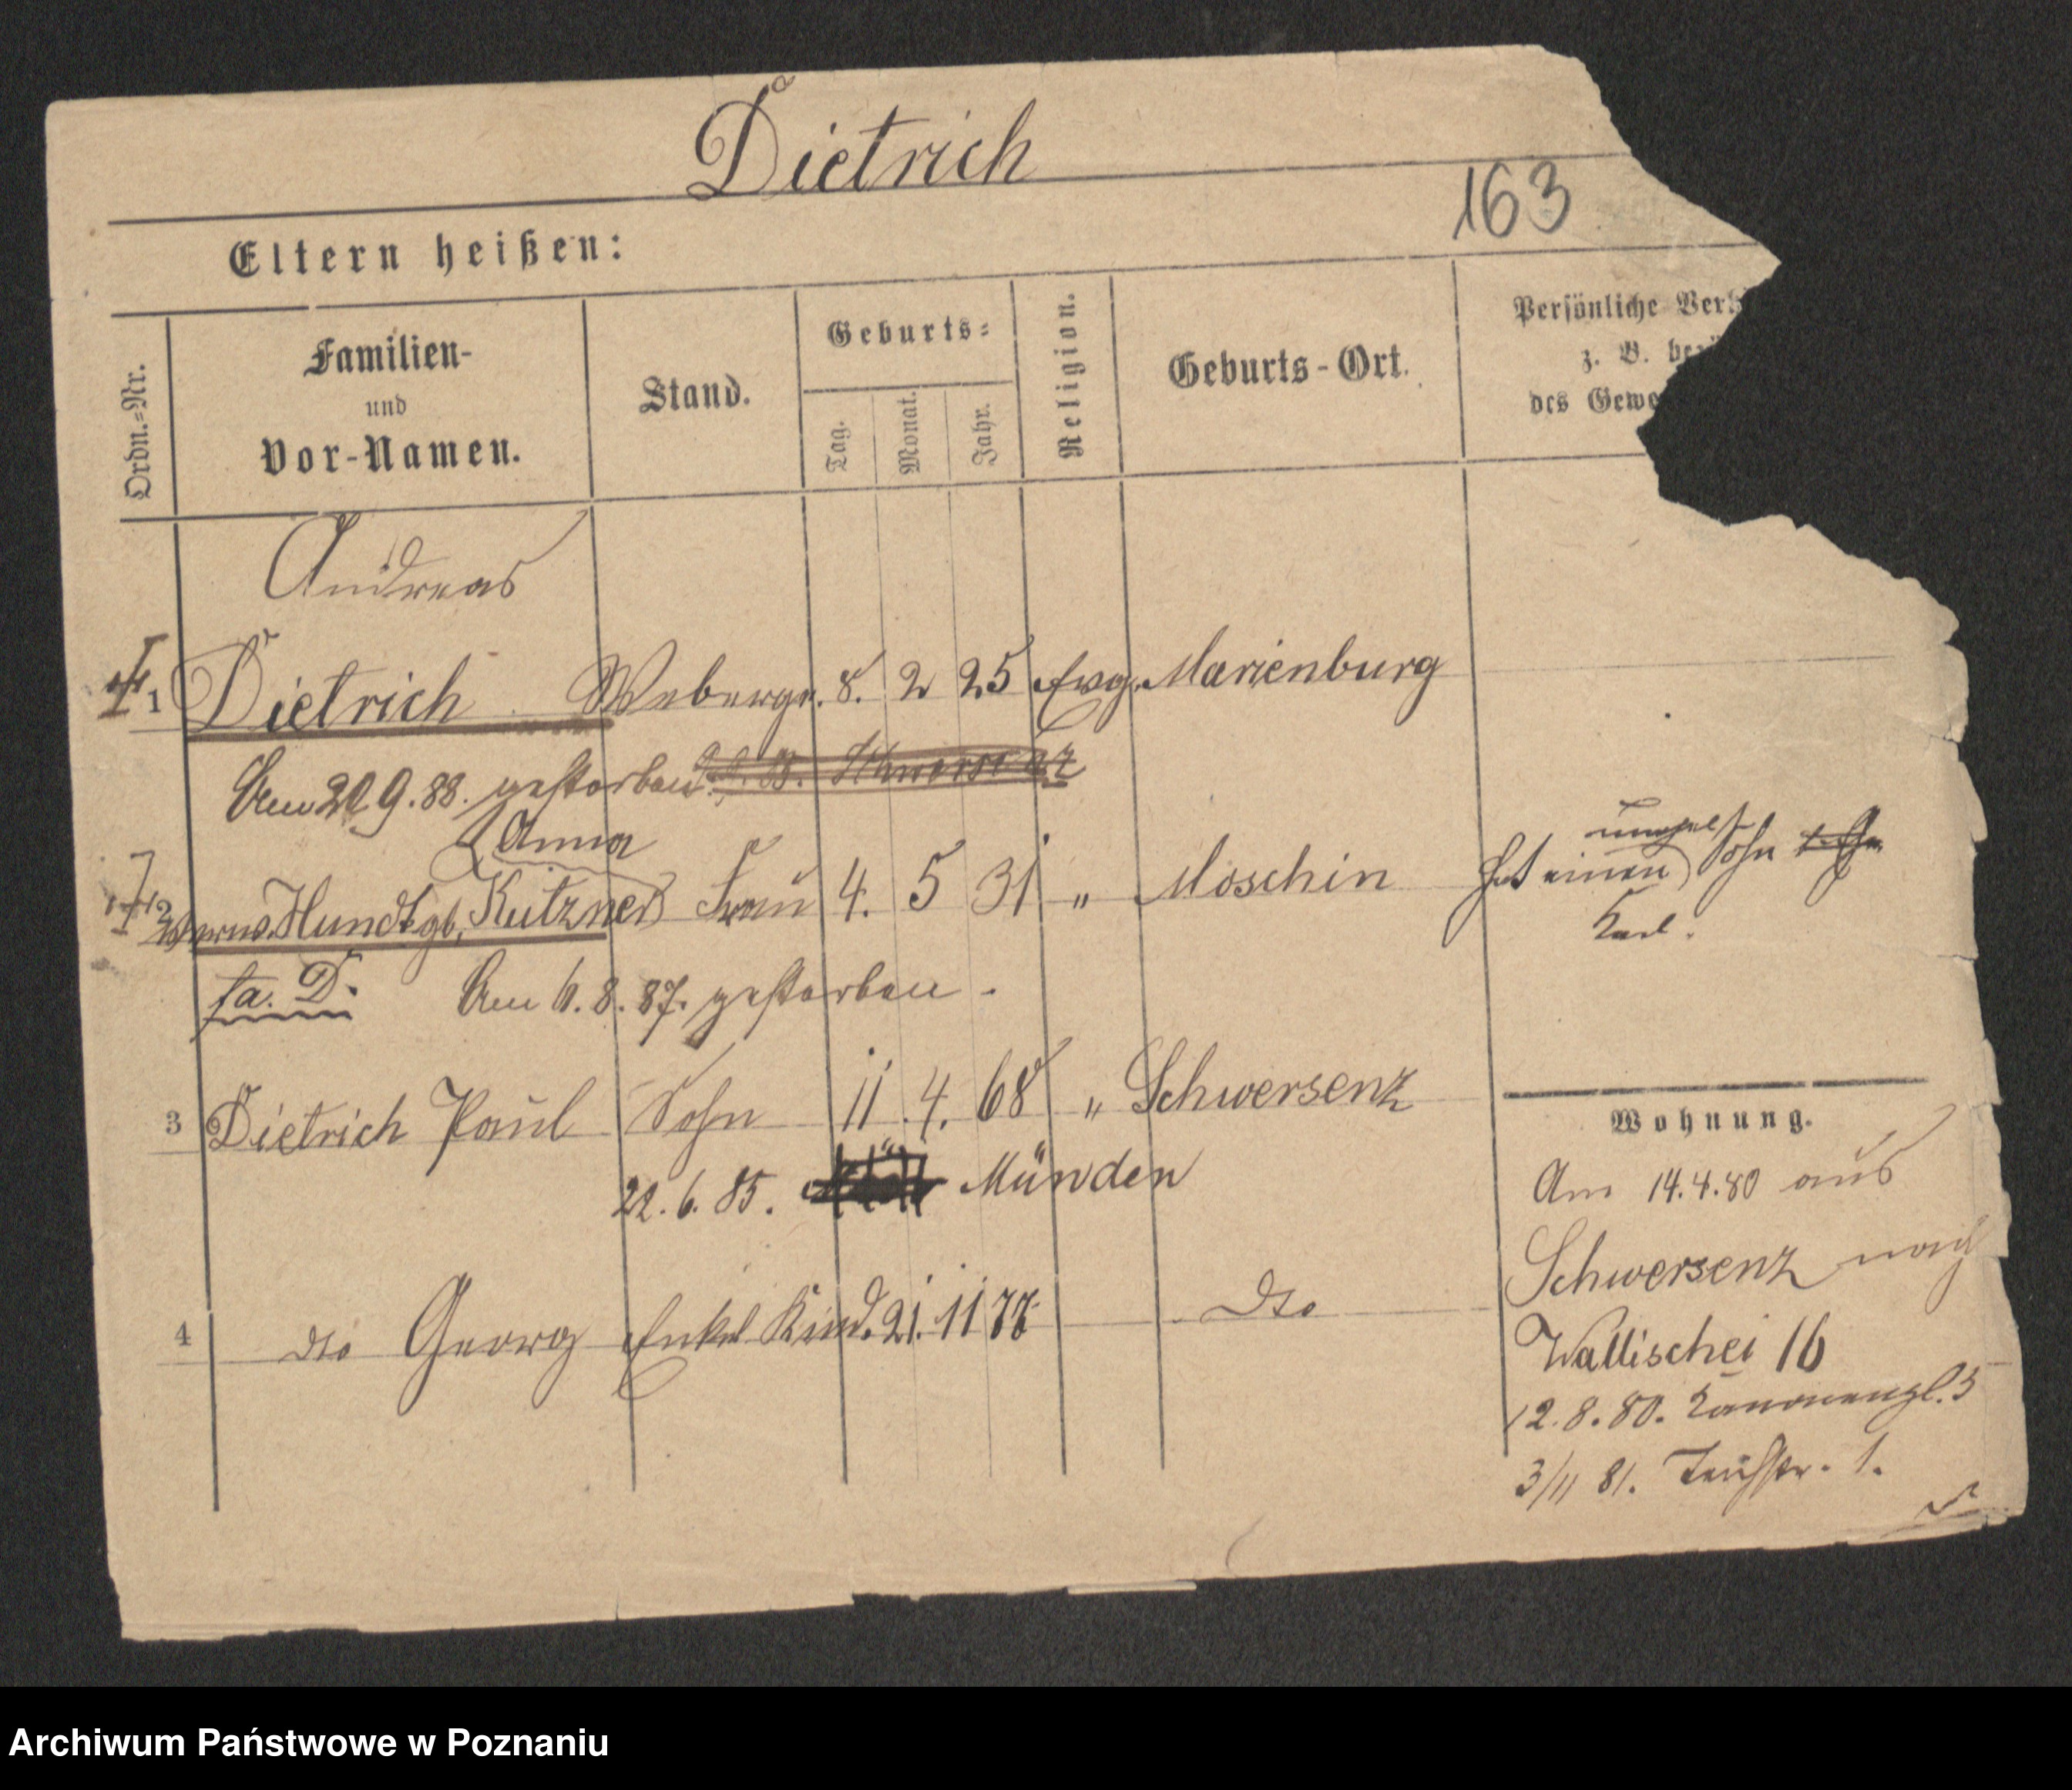 Dietrich
163
Eltern heißen:
Ordn.=Nr.
Familien-
und
Vor-Namen.
Stand.
Geburts=
Tag.
Monat.
Jahr.
Religion.
Geburts-Ort.
Persönliche Verh
z. B. bezü
des Gewe
Andreas
1 Dietrich Webergs. 8. 2 25 Evg. Marienburg
Am 20 9. 88. gestorben. Schwersenz
Anna
2 verw. Hundt gb. Kutzner Frau 4. 5 31 " Moschin Hat einen Sohn
Karl.
fa. D. Am 6. 8. 87. gestorben.
3 Dietrich Paul Sohn 11. 4. 68 " Schwersenz
22. 6. 85. Münden
4 dto Georg Enkel Kind. 21. 11 77 dto
Wohnung.
Am 14.4.80 aus
Schwersenz nach
Wallischei 16
12. 8. 80. Kanonenpl. 5
3/11 81. 1.